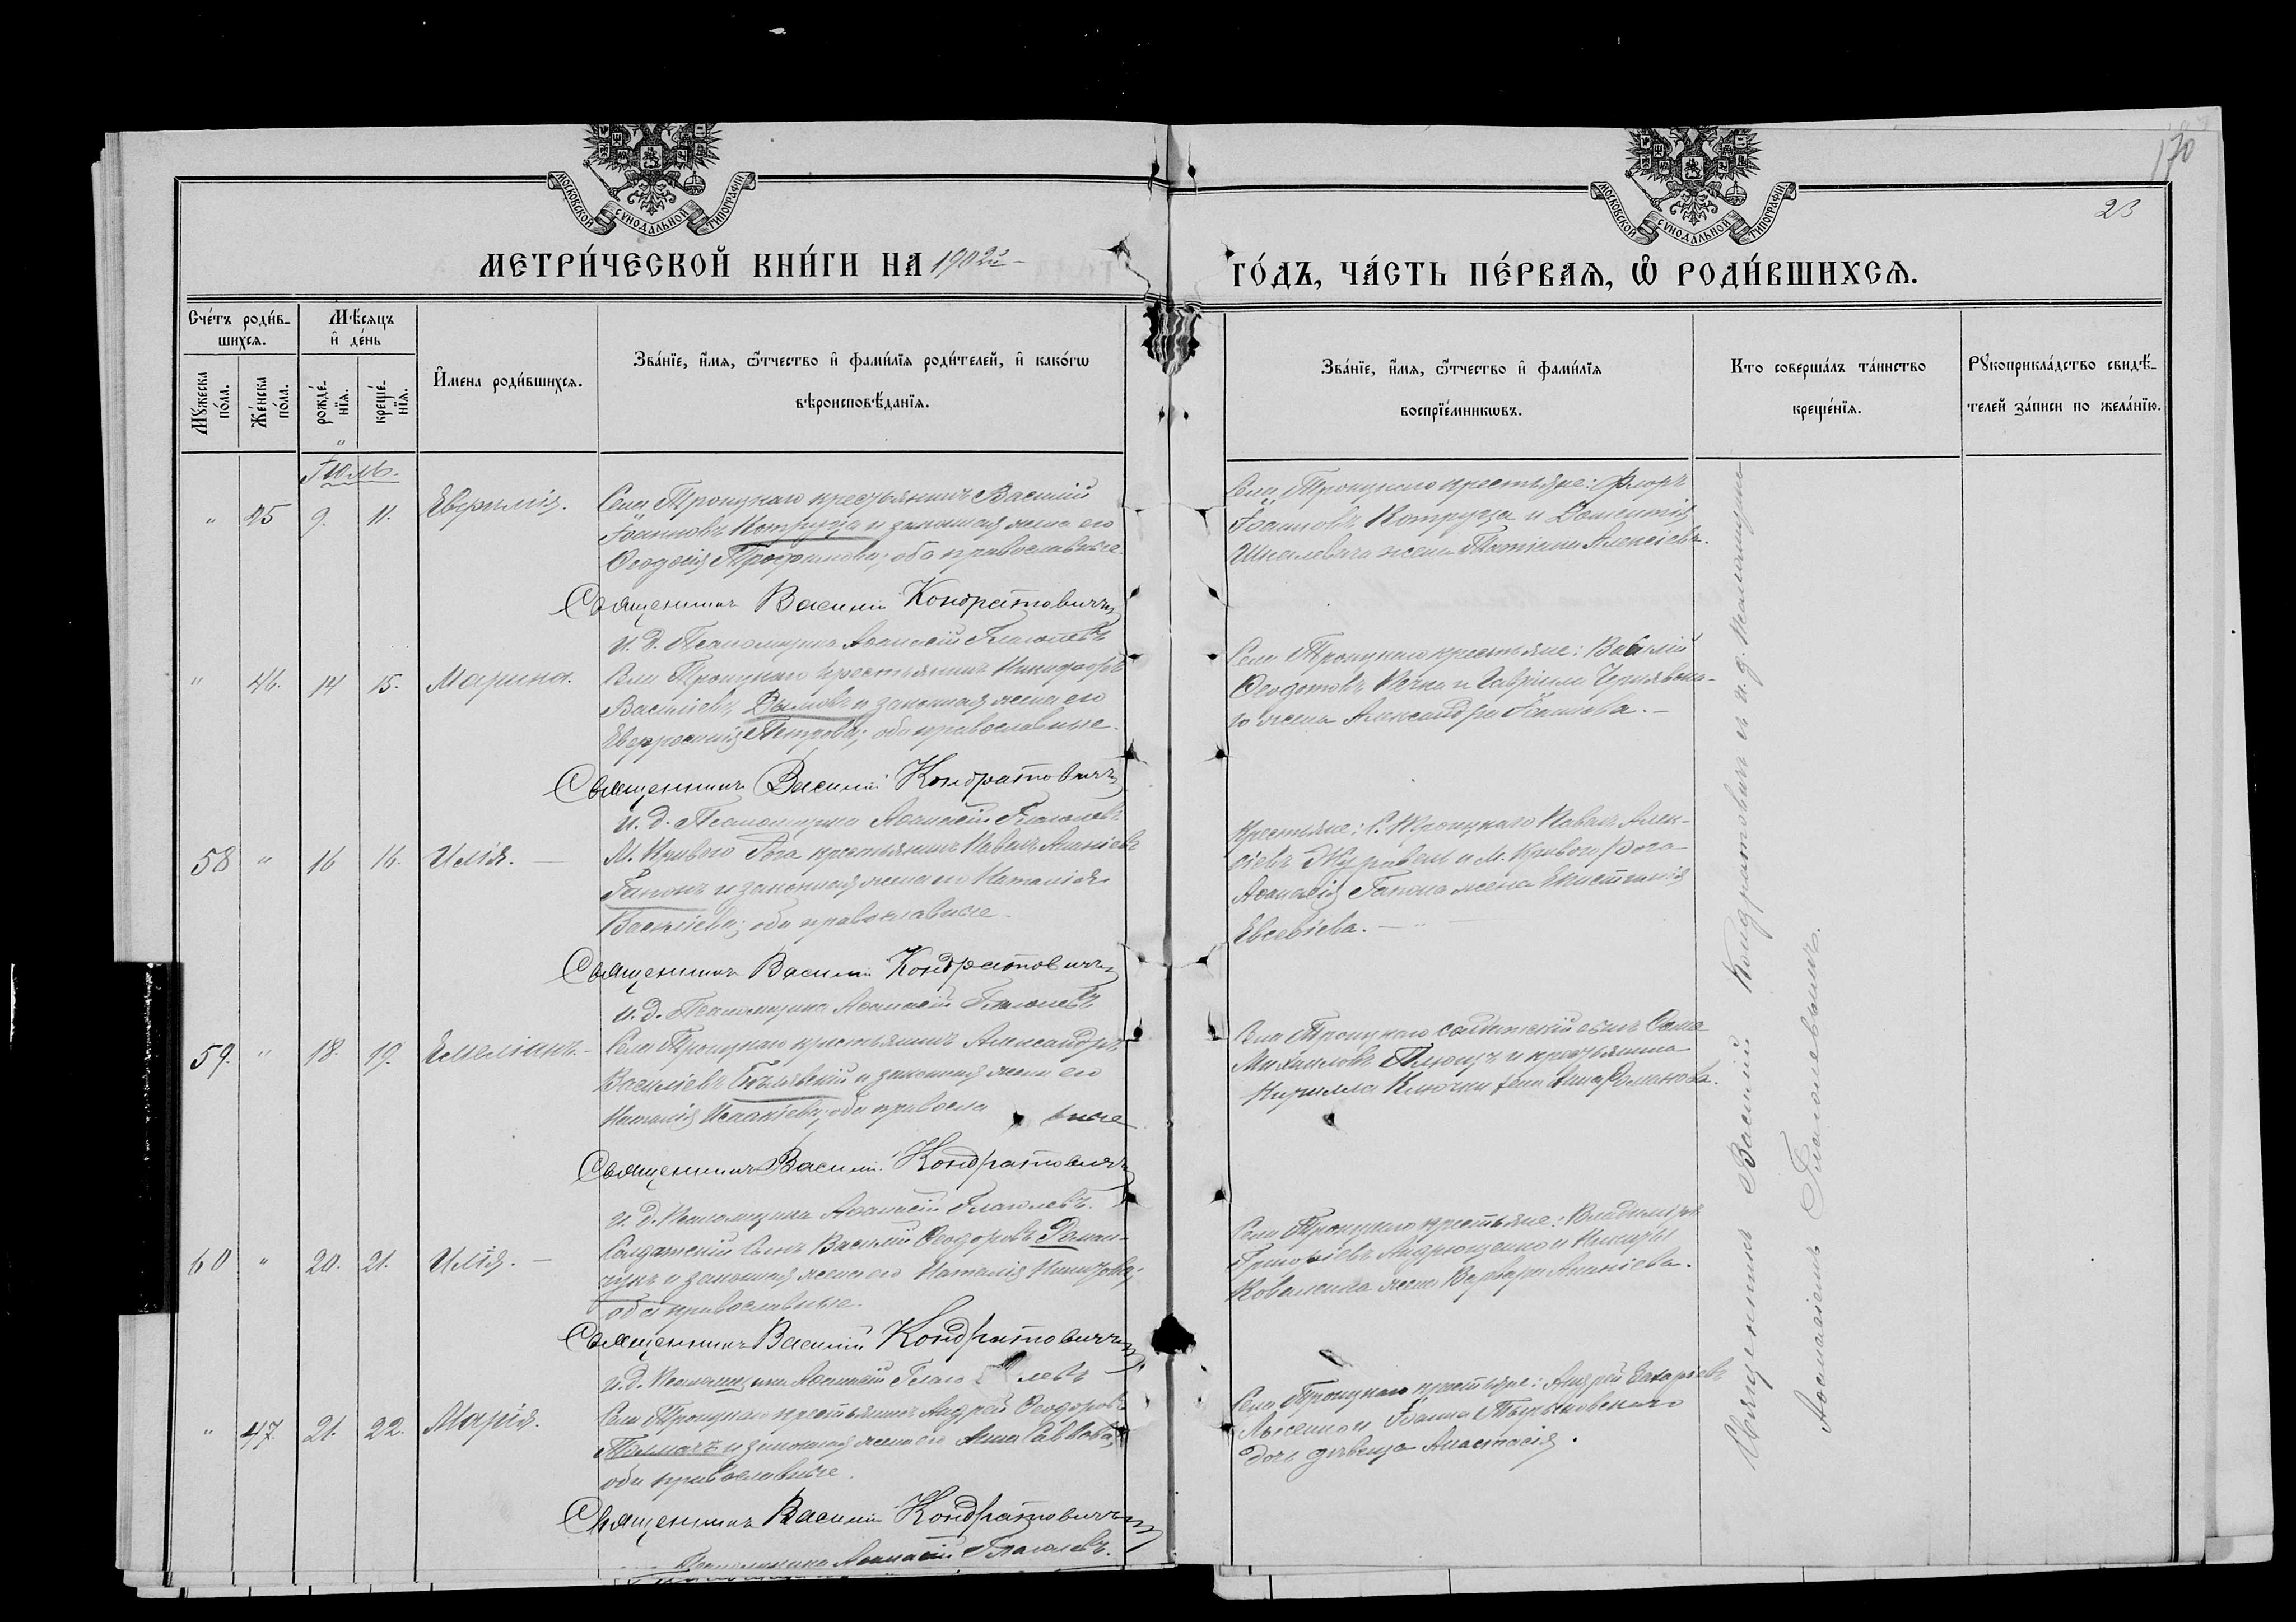 170
23
МОСКОВСКОЙ СѴНОДАЛЬНОЙ ТИПОГРАФІИ
МОСКОВСКОЙ СѴНОДАЛЬНОЙ ТИПОГРАФІИ
МЕТРИ́ЧЕСКОЙ КНИ́ГИ НА 1902й
ГО́ДЪ, ЧА́СТЬ ПЕ́РВАѦ, Ѡ РОДИ́ВШИХСѦ.
Сче́тъ роди́в-
шихсѧ.
Мꙋжеска по́ла.
Же́нска по́ла.
Мѣ́сяцъ
и҆ де́нь
рожде́-
нїѧ.
креще́-
нїѧ.
И҆мена роди́вшихсѧ.
Зва́нїе, и҆́мѧ, ѻ҆́тчество и҆ фами́лїѧ роди́телей, и҆ како́гѡ
вѣроисповѣ́данїѧ.
Зва́нїе, и҆́мѧ, ѻ҆́тчество и҆ фами́лїѧ
воспрїе́мникѡвъ.
Кто соверша́лъ та́инство
креще́нїѧ.
Рꙋкоприкла́дство свидѣ́-
телей за́писи по жела́нїю.
Іюль.
" 45 9. 11. Евфимія.
Села Троицкаго крестьянинъ Василій
Іоанновъ Котруца и законная жена его
Ѳеодосія Трофимова; оба православные.
Священникъ Василій Кондратовичъ
и. д. Псаломщика Аѳанасій Глаголевъ
Села Троицкаго крестьяне: Флоръ
Іоанновъ Котруца и Дометія
жена Татіана Алексіева.
" 46. 14 15. Марина.
Села Троицкаго крестьянинъ Никифоръ
Василіевъ Дымовъ и законная жена его
Евфросинія Петрова; оба православные.
Священникъ Василій Кондратовичъ
и. д. Псаломщика Аѳанасій Глаголевъ
Села Троицкаго крестьяне: Василій
Ѳеодотовъ и Гавріила Чернявска-
го жена Александра Іоаннова. -
58 " 16 16. Илія. -
М. Кривого Рога крестьянинъ Павелъ Ананіевъ
Гапонъ и законная жена его Наталія
Василіева; оба православные.
Священникъ Василій Кондратовичъ
и. д. Псаломщика Аѳанасій Глаголевъ
Крестьяне: С. Троицкаго Павелъ Алек-
сіевъ Журавель и М. Кривого Рога
Аѳанасія Гапона жена
Евсевіева. -
59. " 18. 19. Емеліанъ. -
Села Троицкаго крестьянинъ Александръ
Василіевъ Бѣлявскій и законная жена его
Наталія Исаакіева; оба правосла вные
Священникъ Василій Кондратовичъ
и. д. Псаломщика Аѳанасій Глаголевъ.
Села Троицкаго солдатскій сынъ Савва
Михаиловъ и крестьянина
Кирилла Ключки жена Анна Романова.
60 " 20. 21. Илія. -
Солдатскій сынъ Василій Ѳеодоровъ Роман-
чукъ и законная жена его Наталія
оба православные.
Священникъ Василій Кондратовичъ
и. д. Псаломщика Аѳанасій Глаголевъ
Села Троицкаго крестьяне: Владиміръ
Григоріевъ Андрющенко и Никиты
Коваленка жена Варвара Ананіева.
" 47. 21. 22. Марія.
Села Троицкаго крестьянинъ Андрей Ѳеодоровъ
Толмачъ и законная жена его Анна Саввова;
оба православные.
Священникъ Василій Кондратовичъ
Псаломщика Аѳанасій Глаголевъ.
Села Троицкаго крестьяне: Андрей Захаріевъ
Лысенко и Іоанна
дочь дѣвица Анастасія.
Священникъ Василій Кондратовичъ и и. д. Псаломщика
Аѳанасіемъ Глаголевымъ.